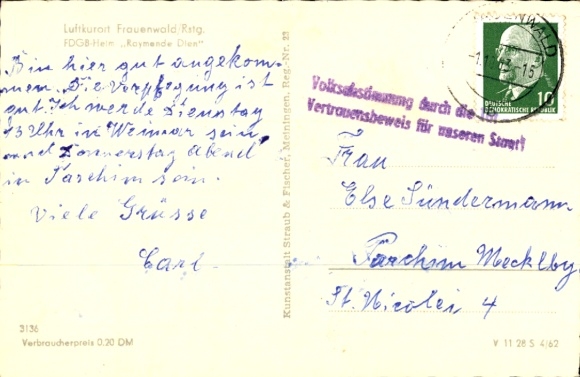 Luftkurort Frauenwald/Rstg.
FDGB-Heim „Raymonde Dien"
Bin hier gut angekom-
men. Die Verpflegung ist
gut. Ich werde Dienstag
13 Uhr in Weimar sein
und Donnerstag Abend
in Parchim sein.
Viele Grüsse
Carl
3136
Verbraucherpreis 0.20 DM
Kunstanstalt Straub & Fischer, Meiningen, Reg.-Nr. 23
Volksabstimmung durch die
Vertrauensbeweis für unseren Staat!
WALD
DEUTSCHE
DEMOKRATISCHE REPUBLIK
10
Frau
Else Sündermann
Parchim Mecklbg
St. Nicolei 4
V 11 28 S 4/62